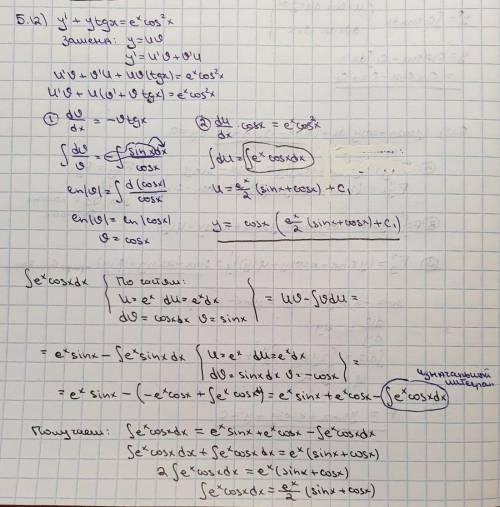 5.12) y' + y tgx = e^x cos²x
Замена: y = uϑ
y' = u'ϑ + ϑ'u
u'ϑ + ϑ'u + uϑ(tgx) = e^x cos²x
u'ϑ + u(ϑ' + ϑtgx) = e^x cos²x
① dϑ/dx = -ϑtgx
∫ dϑ/ϑ = -∫ sinxdx/cosx
ln|ϑ| = ∫ d(cosx)/cosx
ln|ϑ| = ln|cosx|
ϑ = cosx
② du/dx · cosx = e^x cos²x
∫du = ∫e^x cosxdx
u = e^x/2 (sinx + cosx) + C₁
y = cosx (e^x/2 (sinx + cosx) + C₁)
∫e^x cosxdx { По частям:
u = e^x du = e^x dx
dϑ = cosxdx ϑ = sinx } = uϑ - ∫ϑdu =
= e^x sinx - ∫e^x sinxdx { u = e^x du = e^x dx
dϑ = sinxdx ϑ = -cosx } =
= e^x sinx - (-e^x cosx + ∫e^x cosx) = e^x sinx + e^x cosx - ∫e^x cosxdx
изначальный
интеграл
Получаем: ∫e^x cosxdx = e^x sinx + e^x cosx - ∫e^x cosxdx
∫e^x cosxdx + ∫e^x cosxdx = e^x (sinx + cosx)
2∫e^x cosxdx = e^x (sinx + cosx)
∫e^x cosxdx = e^x/2 (sinx + cosx)